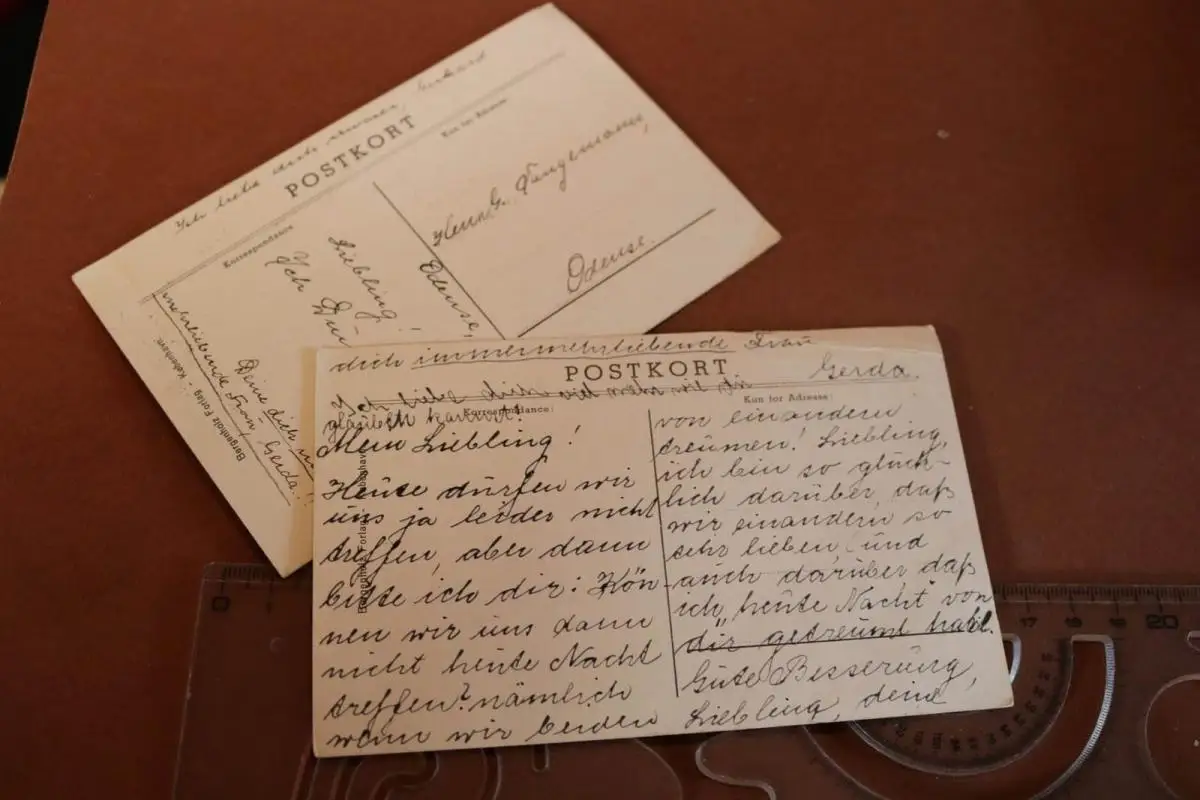 Ich liebe dich
POSTKORT
Kun for Adresse
Korrespondance
Herr G. Tangemann,
Odense.
Odense,
Liebling!
Ich
Deine dich
mehrliebende Frau Gerda!
Bergenholz Forlag - København.
dich immermehrliebende Frau
Gerda.
POSTKORT
Ich liebe dich viel mehr wie du
Korrespondance:
Kun for Adresse:
Mein Liebling!
Heute dürfen wir
uns ja leider nicht
treffen, aber dann
bitte ich dir: Kön-
nen wir uns dann
nicht heute Nacht
treffen? nämlich
wenn wir beiden
von einandern
treumen! Liebling,
ich bin so glück-
lich darüber, daß
wir einandern so
sehr lieben, und
auch darüber daß
ich heute Nacht von
dir getreumt hab.
Gute Besserung,
Liebling, deine